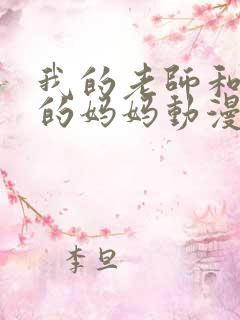 我的老師和
的妈妈動漫
李旦